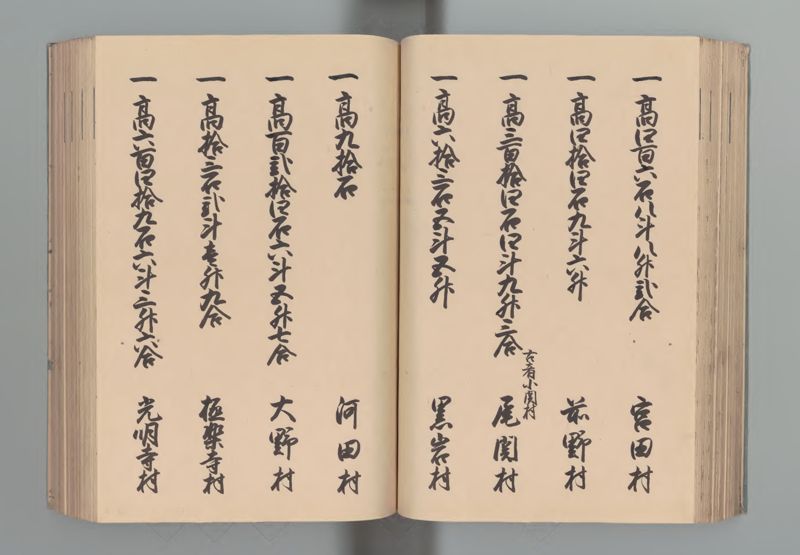 一高四百六石八斗八升弐合 宮田村
一高四拾四石九斗六升 前野村
一高三百拾四石四斗九升三合 古者小関村 尾関村
一高六拾三石五斗五升 黒岩村
一高九拾石 河田村
一高百弐拾四石六斗五升七合 大野村
一高拾三石弐斗壱升九合 極楽寺村
一高六百四拾九石六斗三升六合 光明寺村